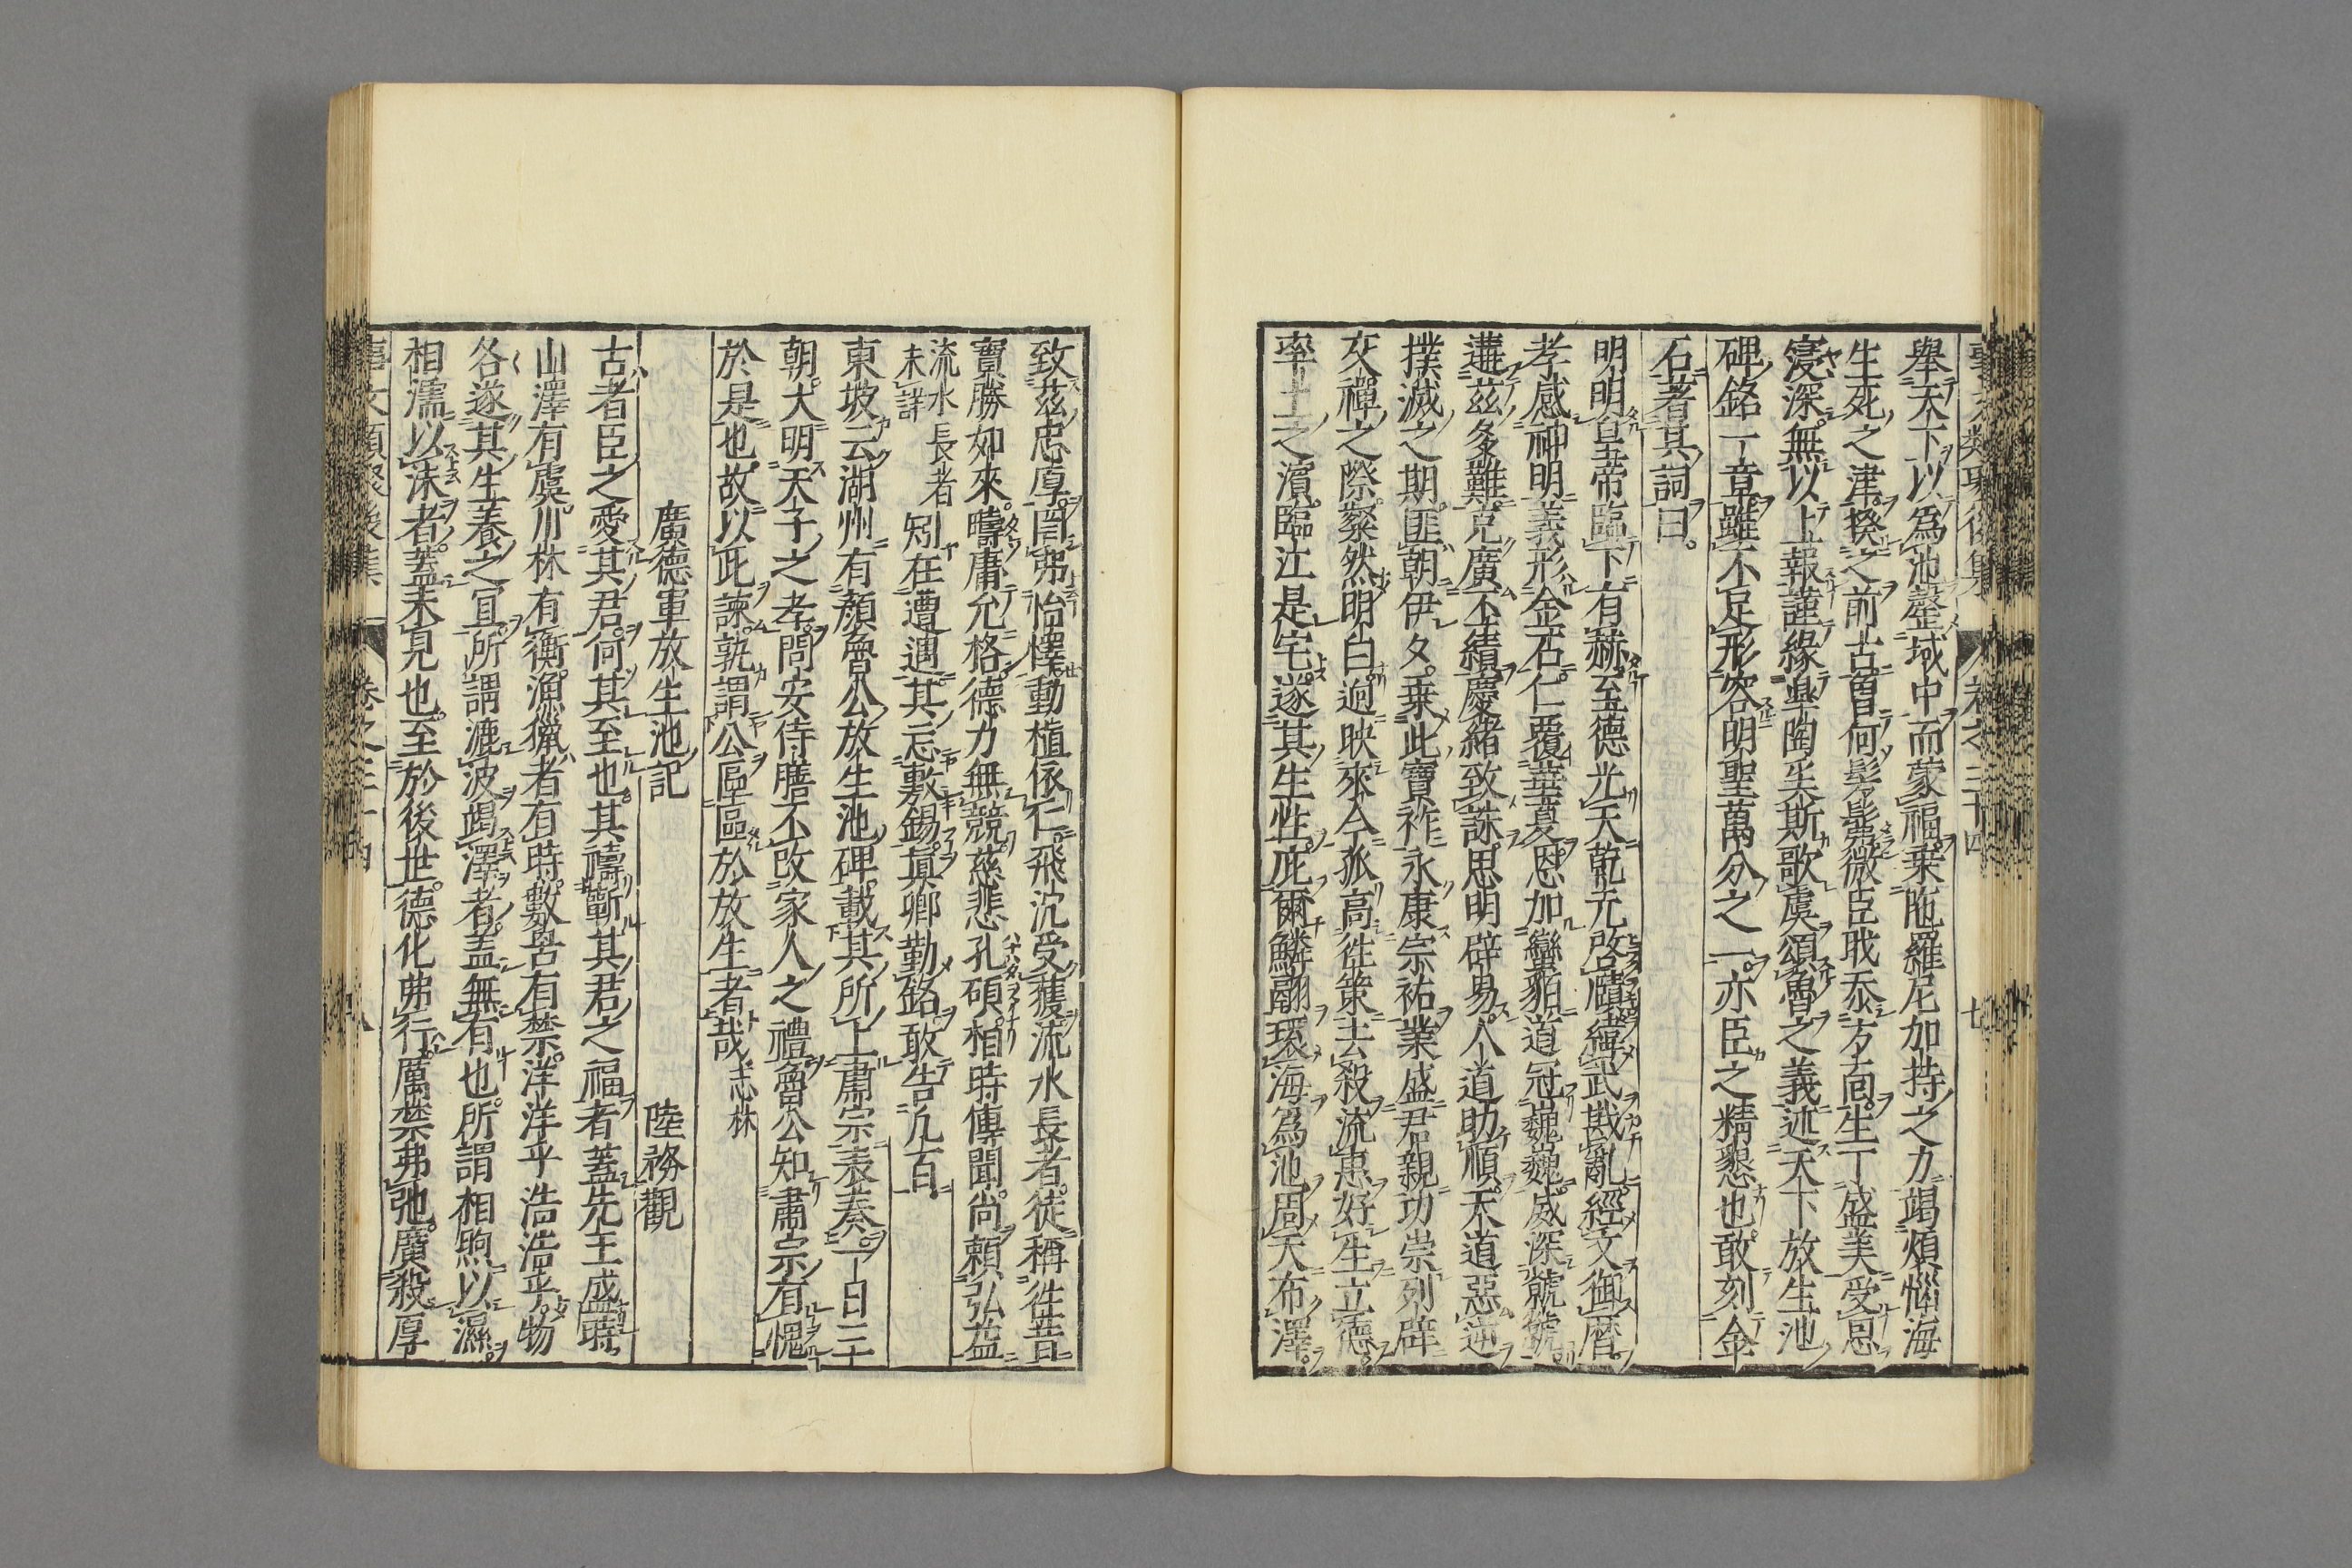 舉天下以爲池罄域中而蒙福乗陁羅尼加持之力竭煩惱海
生死之津揆之前古曽何髣髴微臣職忝方面生丁盛美受恩
寖深無以上報謹緣皐陶奚斯歌虞頌魯之義述天下放生池
碑銘一章雖不足形容明聖萬分之一亦臣之精懇也敢刻金
石著其詞曰
明明皇帝臨下有赫至德光天乾元啓賾緯武戡亂經文御曆
孝感神明義形金石仁覆華夏恩加蠻貊道冠巍巍威深虩虩
遘茲多難克廣丕績慶緒致誅思明辟易人道助順天道惡逆
撲滅之期匪朝伊夕乗此寶祚永康宗祏業盛君親功崇列辟
交禪之際粲然明白迥映來今孤高徃策去殺流惠好生立德
率土之濱臨江是宅遂其生性庇爾鱗翮環海爲池周天布澤
致茲忠厚罔弗怡懌動植依仁飛沉受獲流水長者徒稱徃昔
寶勝如來疇庸允格德力無競慈悲孔碩相時傳聞尚頼弘益
流水長者
未詳
矧在遭遇其忘敷錫真卿勤銘敢告凢百
東坡云湖州有顏魯公放生池碑載其所上肅宗表奏一曰三
朝大明天子之孝問安侍膳不改家人之禮魯公知肅宗有愧
於是也故以此諫孰謂公區區於放生者哉志林
廣德軍放生池記 陸務觀
古者臣之愛其君何其至也其禱蘄其君之福者蓋先王盛時
山澤有虞川林有衡漁獵者有時數罟有禁洋洋乎浩浩乎物
各遂其生養之宜所謂漉波竭澤者盖無有也所謂相煦以濕
相濡以沫者蓋未見也至於後世德化弗行厲禁弗弛廣殺厚